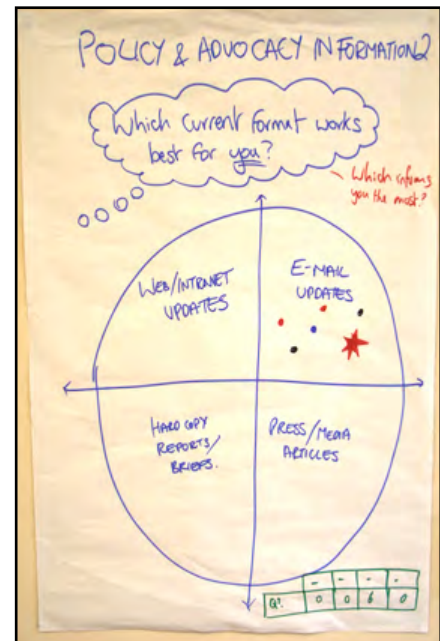 POLICY & ADVOCACY INFORMATION 2
Which current format works
best for you?
Which informs
you the most?
WEB/INTRANET
UPDATES
E-MAIL
UPDATES
HARD COPY
REPORTS/
BRIEFS.
PRESS/MEDIA
ARTICLES
- - - -
Q2. 0 0 6 0